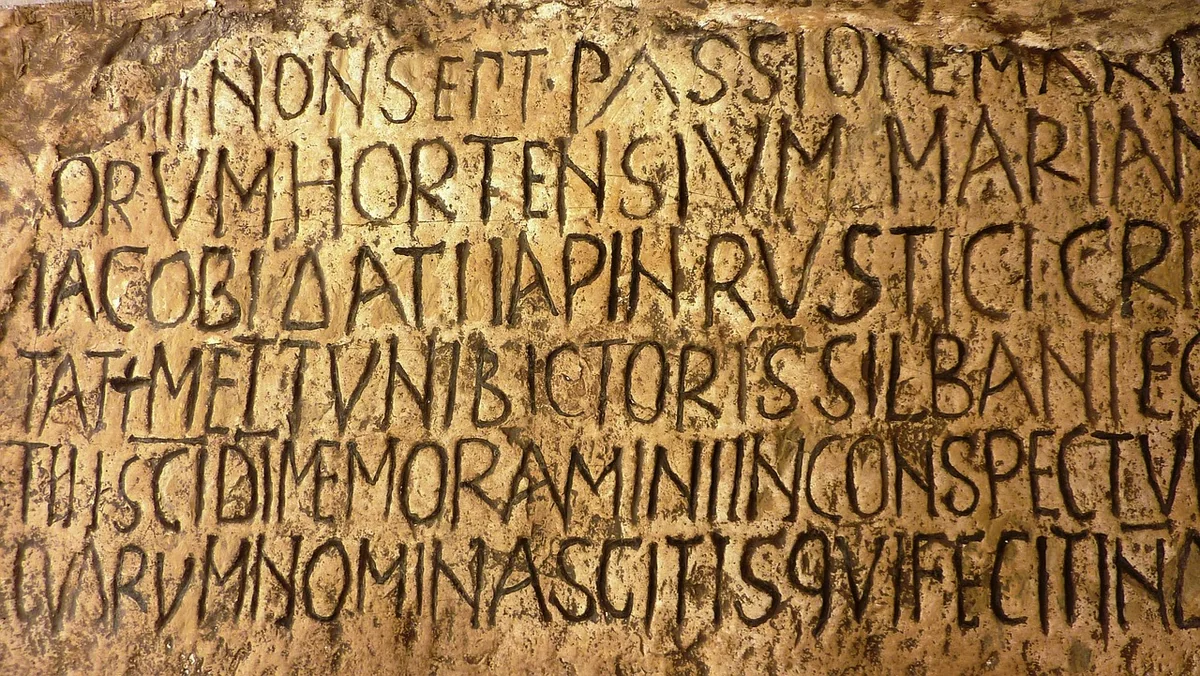 IIII NONSEPT·PASSIONEMART
ORVMHORTENSIVM MARIAN
IACOBIΔATIIAPINRVSTICICRI
TAT+METTVNIBICTORISSILBANIEG
TIISCIDIMEMORAMINIINCONSPECTV
QVARVMNOMINASCITISQVIFECITIN